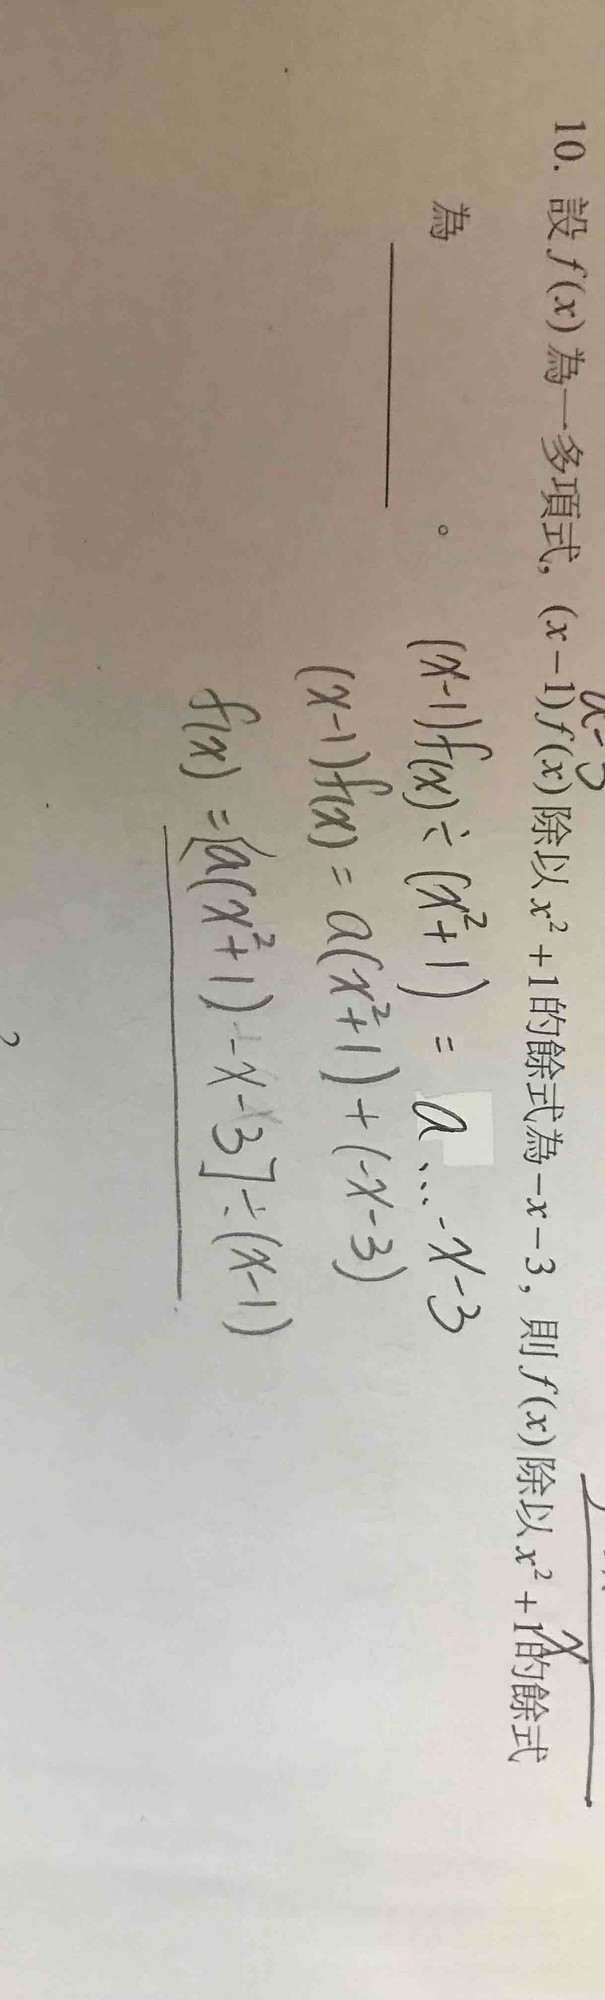 10. 設f(x)為一多項式, (x-1)f(x)除以x²+1的餘式為-x-3, 則f(x)除以x²+1的餘式
為________。
(x-1)f(x)÷(x²+1) = a…-x-3
(x-1)f(x) = a(x²+1)+(-x-3)
f(x) = [a(x²+1)-x-3]÷(x-1)